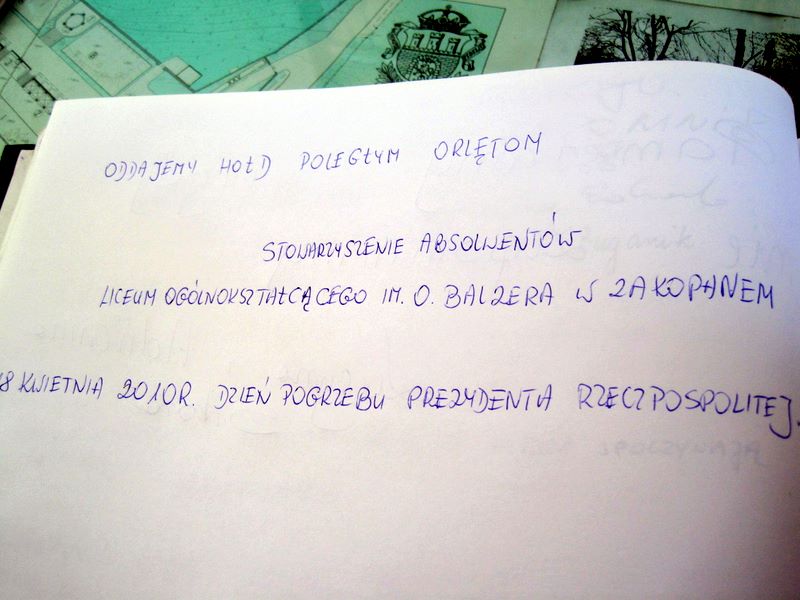 ODDAJEMY HOŁD POLEGŁYM ORLĘTOM
STOWARZYSZENIE ABSOLWENTÓW
LICEUM OGÓLNOKSZTAŁCĄCEGO IM. O. BALZERA W ZAKOPANEM
18 KWIETNIA 2010R. DZIEŃ POGRZEBU PREZYDENTA RZECZPOSPOLITEJ.